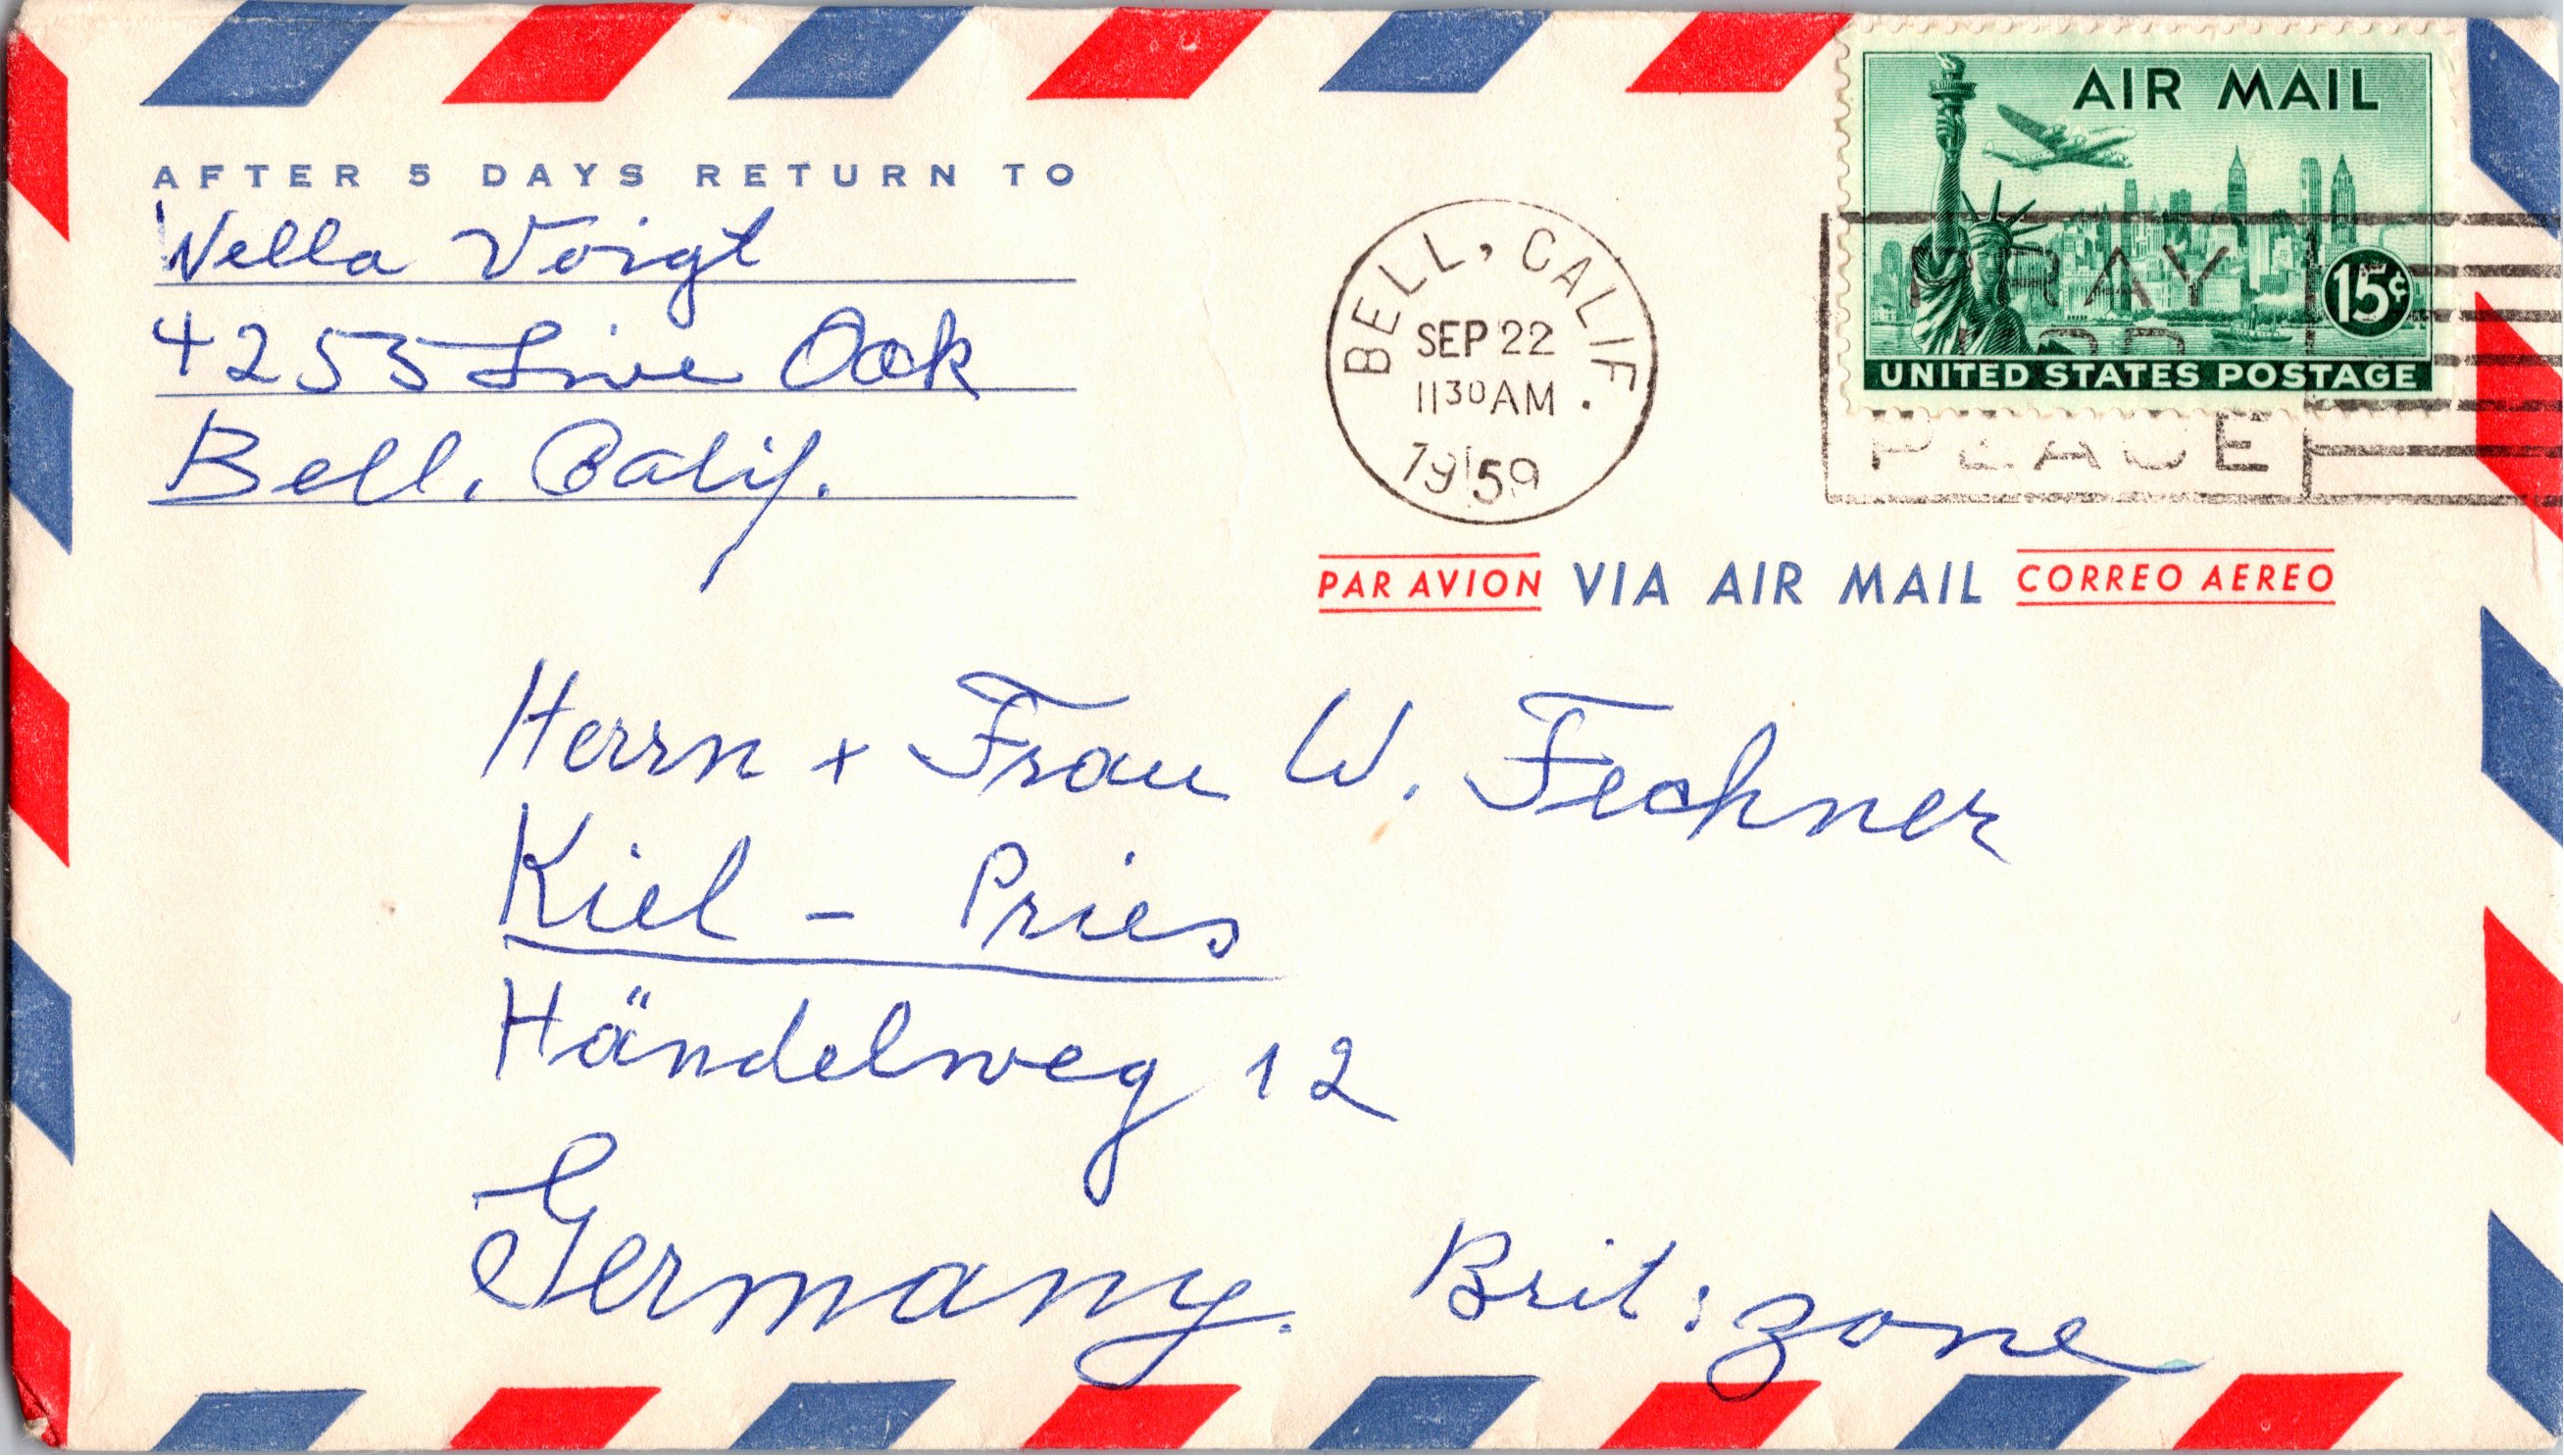 AFTER 5 DAYS RETURN TO
Nella Voigt
4253 Live Oak
Bell, Calif.
BELL, CALIF.
SEP 22
1130 AM
1959
AIR MAIL
15¢
UNITED STATES POSTAGE
PRAY
FOR
PEACE
PAR AVION VIA AIR MAIL CORREO AEREO
Herrn + Frau W. Fechner
Kiel - Pries
Händelweg 12
Germany. Brit: zone